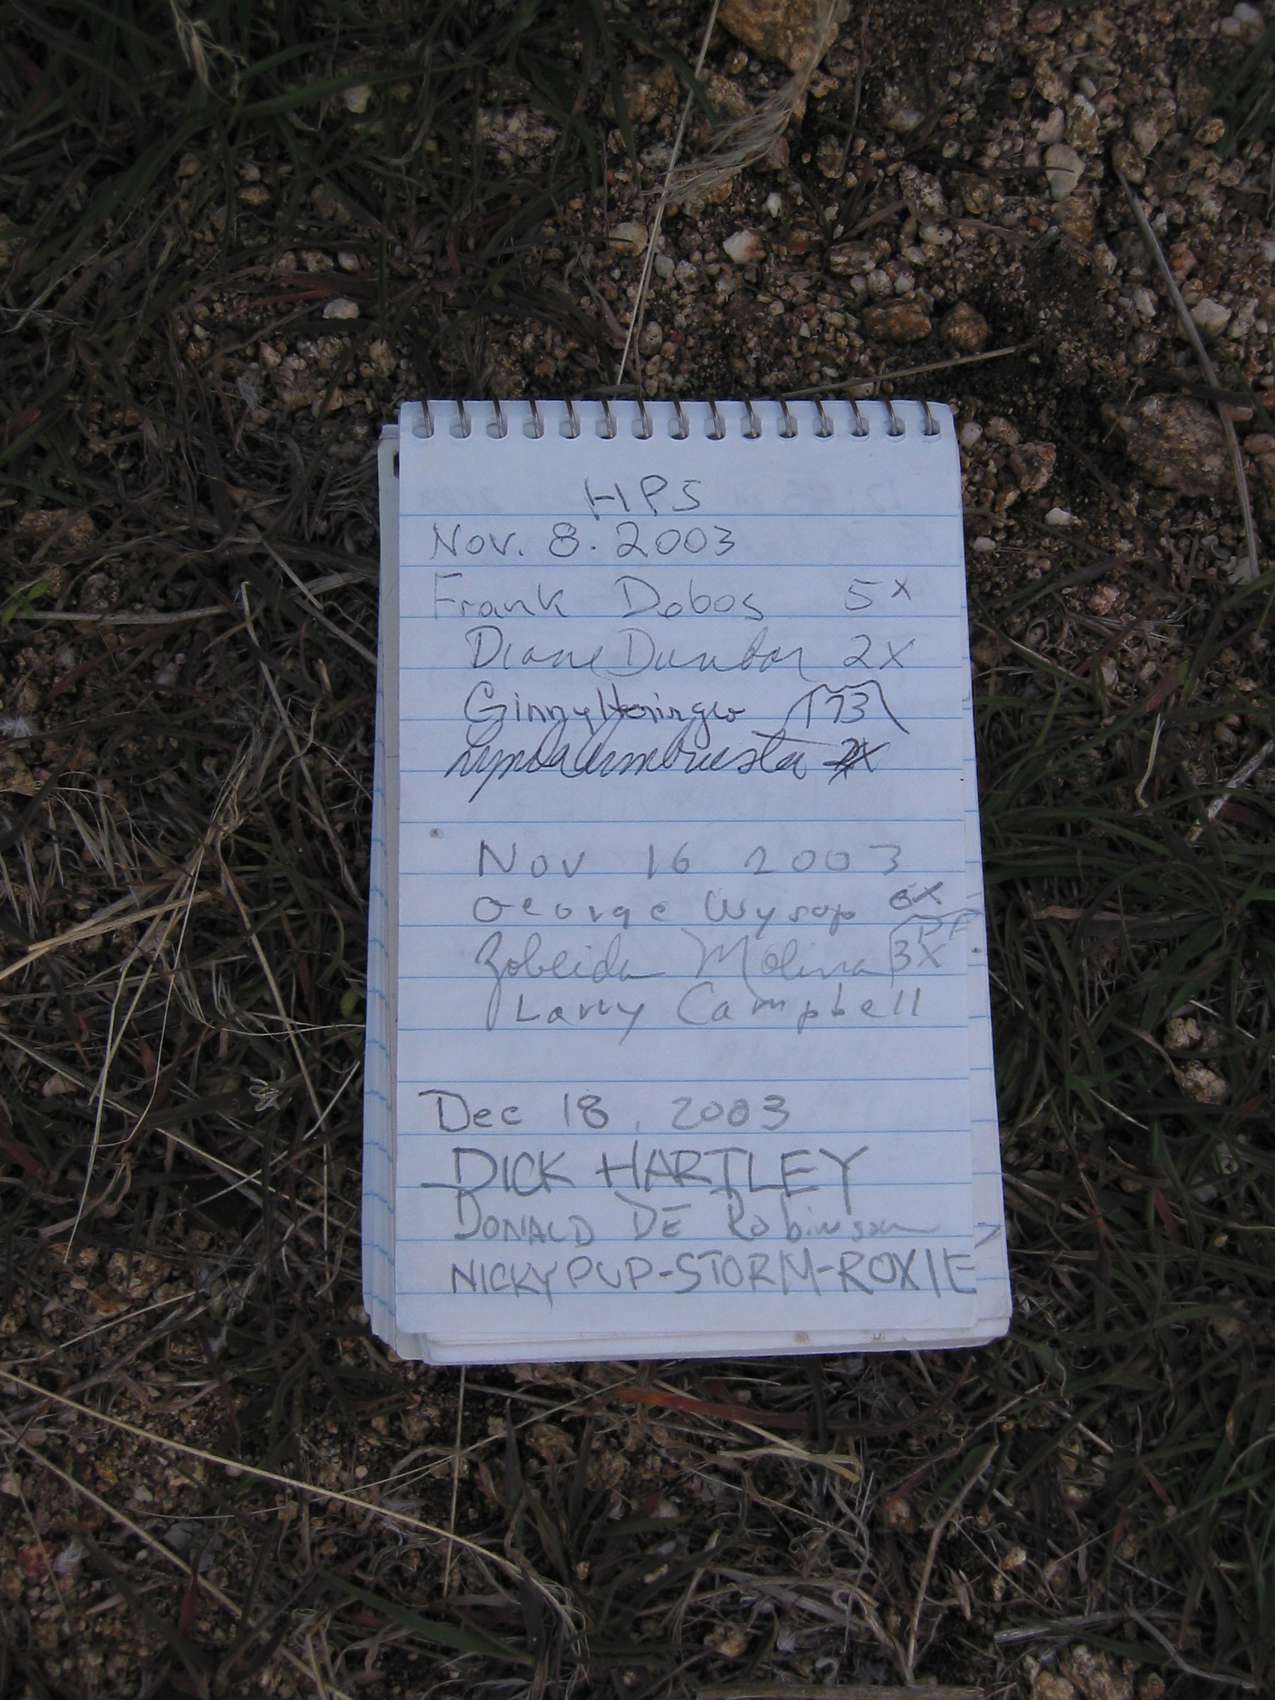 HPS
Nov. 8. 2003
Frank Dobos 5x
Diane Dunbar 2X
Ginny Heringer 173
Lynda Armbruster 2X
Nov 16 2003
George Wysup 6X
Zobeida Molina 3X PF
Larry Campbell
Dec 18, 2003
DICK HARTLEY
DONALD DE Robinson
NICKYPUP-STORM-ROXIE